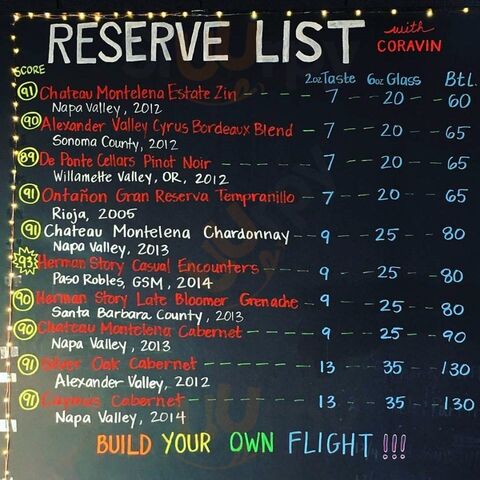 RESERVE LIST with CORAVIN
SCORE 2oz Taste 6oz Glass Btl.
91 Chateau Montelena Estate Zin 7 20 60
Napa Valley, 2012
90 Alexander Valley Cyrus Bordeaux Blend 7 20 65
Sonoma County, 2012
89 De Ponte Cellars Pinot Noir 7 20 65
Willamette Valley, OR, 2012
91 Ontañon Gran Reserva Tempranillo 7 20 65
Rioja, 2005
91 Chateau Montelena Chardonnay 9 25 80
Napa Valley, 2013
93 Herman Story Casual Encounters 9 25 80
Paso Robles, GSM, 2014
90 Herman Story Late Bloomer Grenache 9 25 80
Santa Barbara County, 2013
90 Chateau Montelena Cabernet 9 25 90
Napa Valley, 2013
91 Silver Oak Cabernet 13 35 130
Alexander Valley, 2012
91 Caymus Cabernet 13 35 130
Napa Valley, 2014
BUILD YOUR OWN FLIGHT!!!